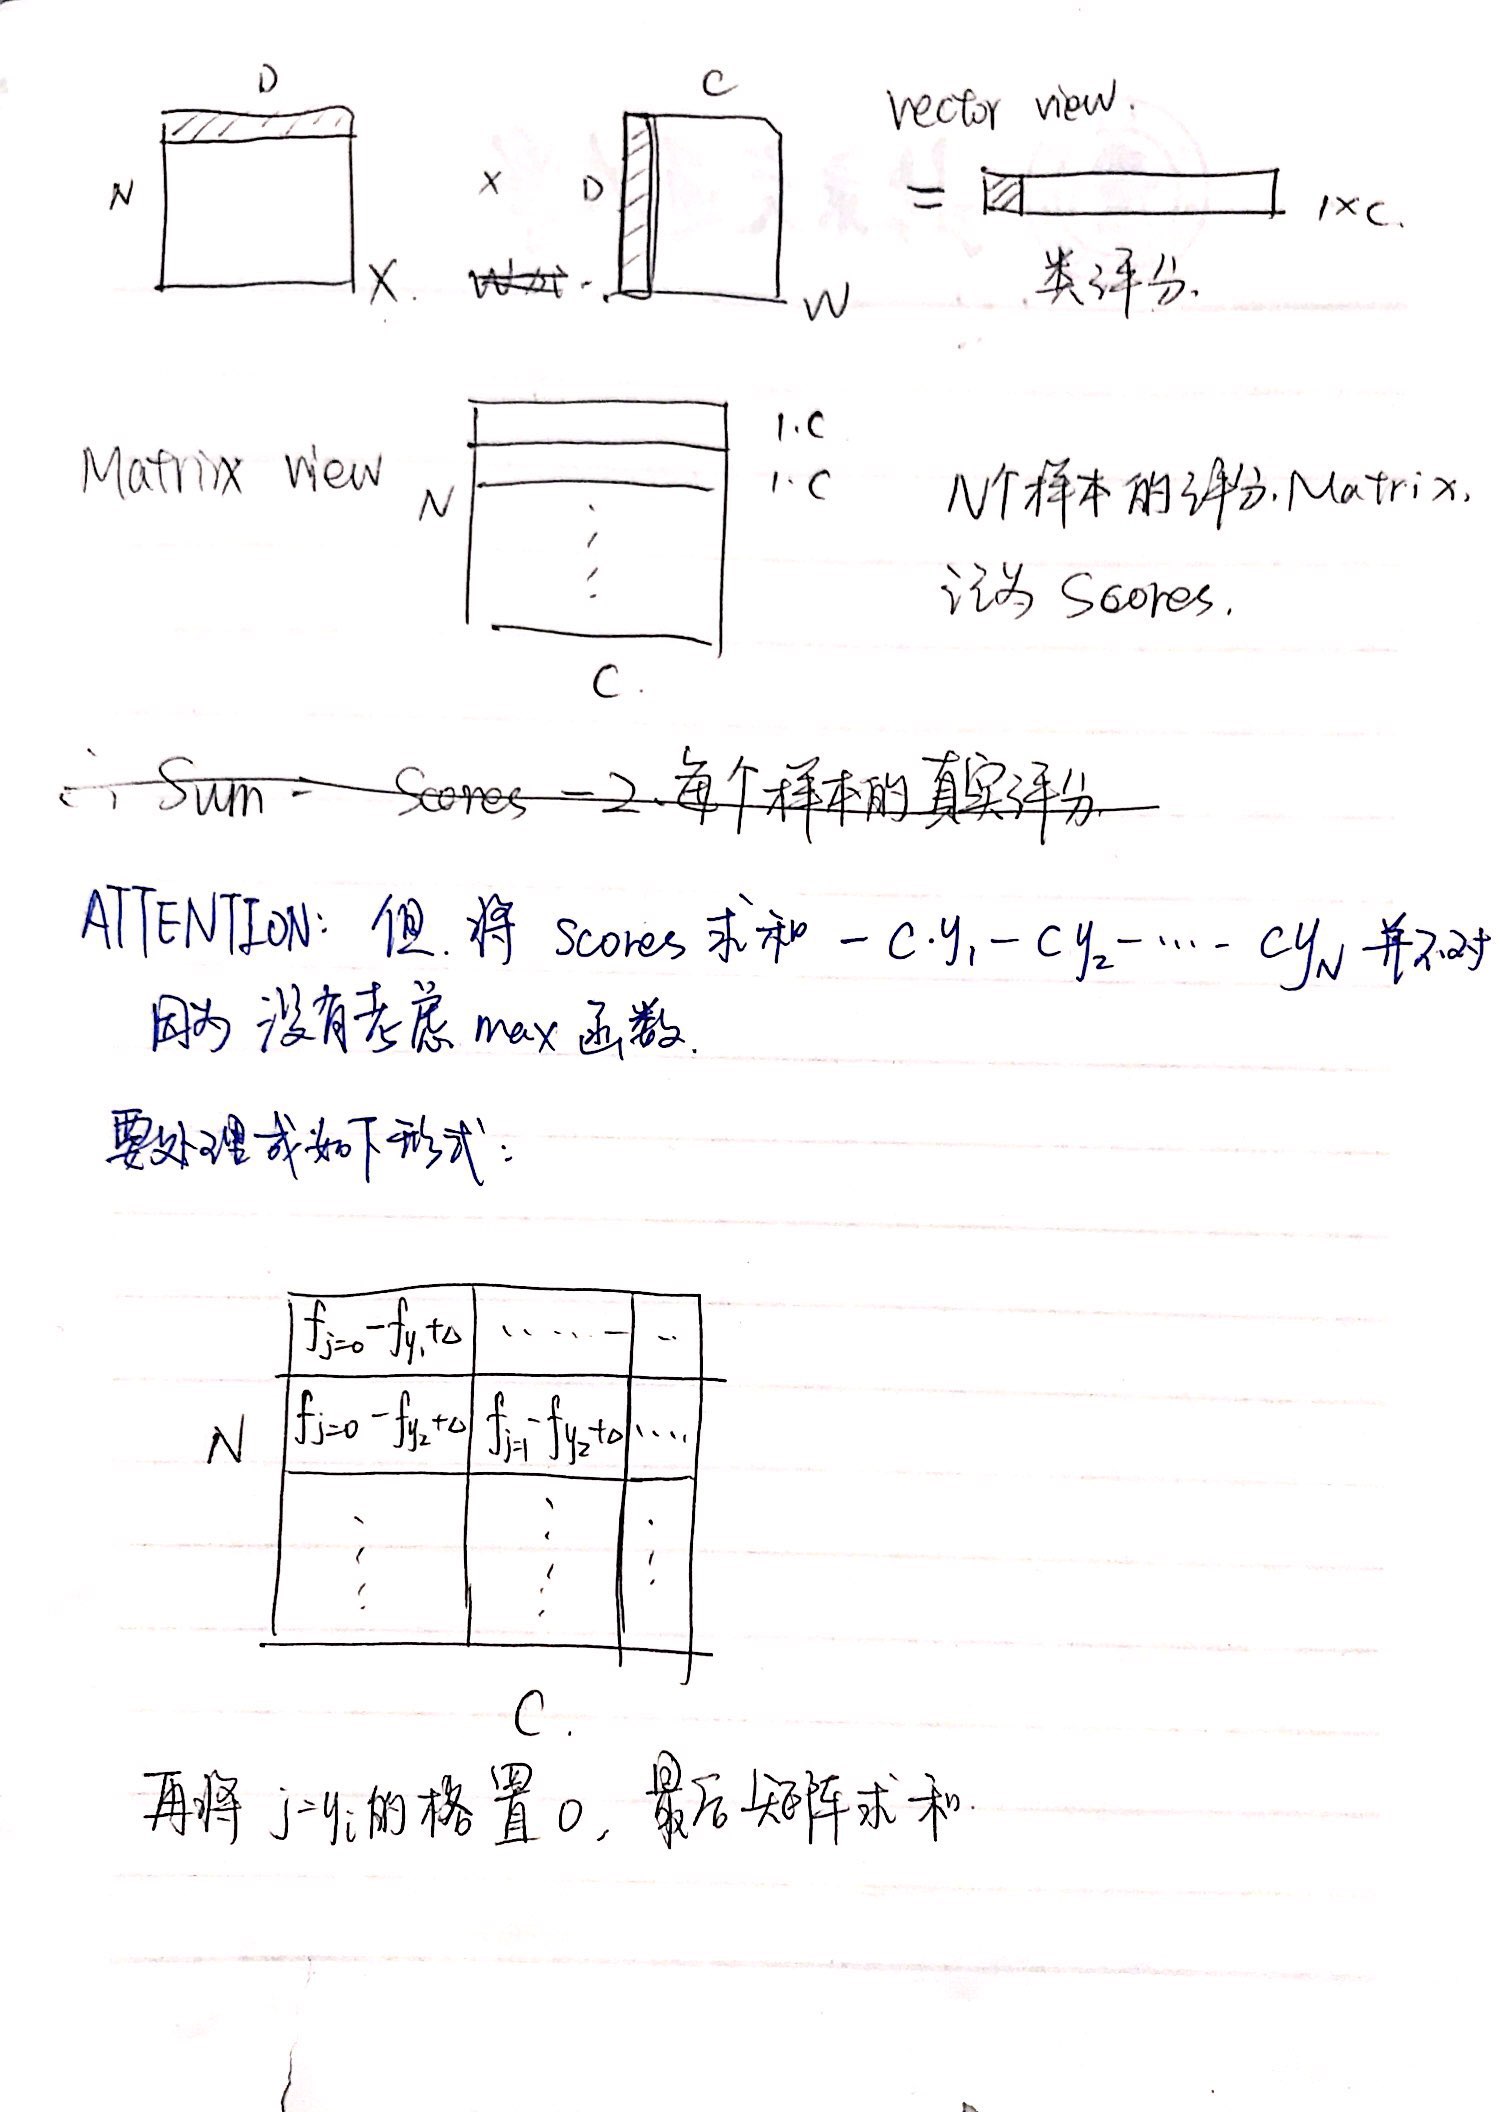 D
C
vector view.
N
×
D
=
1×C.
X.
W
类评分.
1·C
Matrix view
N
1·C
N个样本的评分.Matrix.
记为 Scores.
C.
∴ Sum = Scores - 2.每个样本的真实评分
ATTENTION: 但.将 scores 求和 - C·y₁ - Cy₂ - ···· - CyN 并不对
因为 没有考虑 max 函数.
要处理成如下形式:
fj=0 - fy₁ + Δ ······ ··
N
fj=0 - fy₂ + Δ fj=1 - fy₂ + Δ ····
C.
再将 j=yᵢ的格置0, 最后矩阵求和.